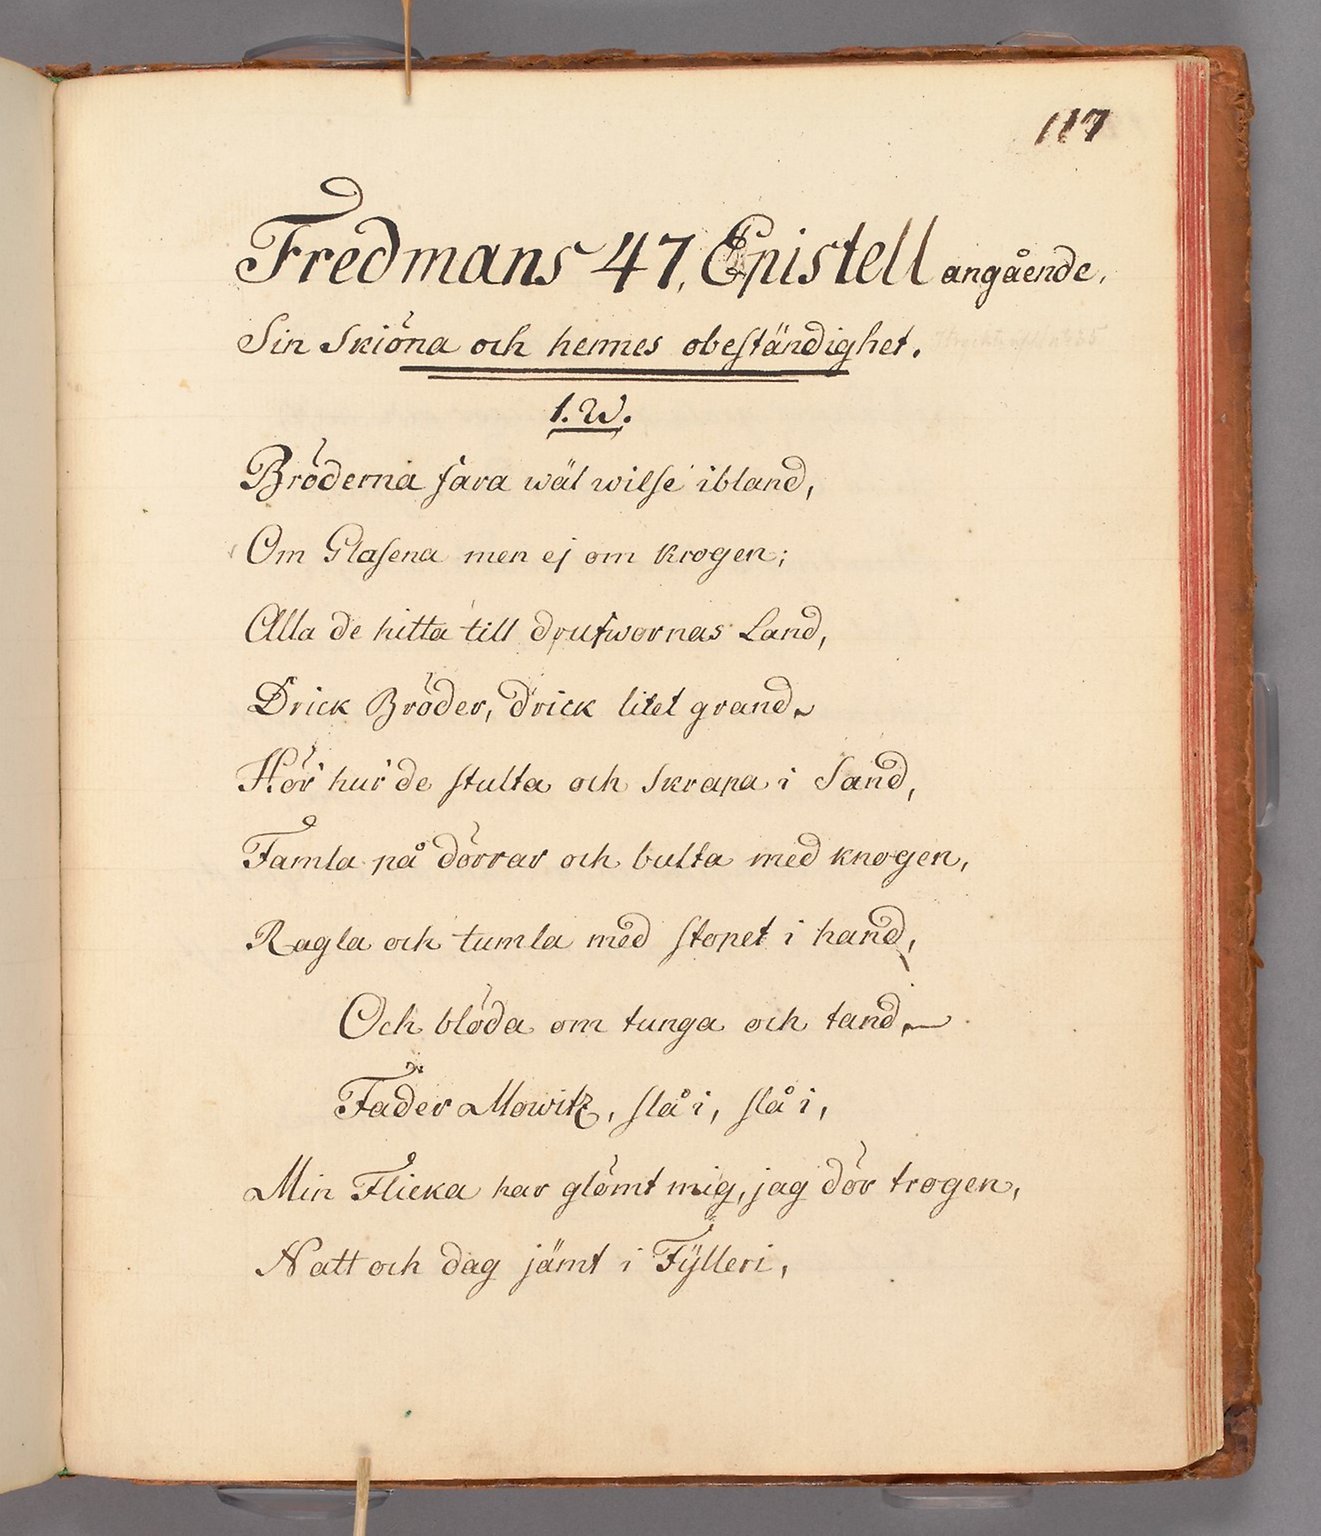 117
Fredmans 47, Epistell angående,
Sin Skiöna och hennes obeständighet.
1. W.
Bröderna fara wäl wilse ibland,
Om Glasena men ej om krogen;
Alla de hitta till drufwornas Land,
Drick Bröder, drick litet grand.
Hör hur de stulta och skrapa i Sand,
Famla på dörrar och bulta med knogen,
Ragla och tumla med stopet i hand,
Och blöda om tunga och tand,
Fader Mowitz, slå i, slå i,
Min Flicka har glömt mig, jag dör trogen,
Natt och dag jämt i Fÿlleri,